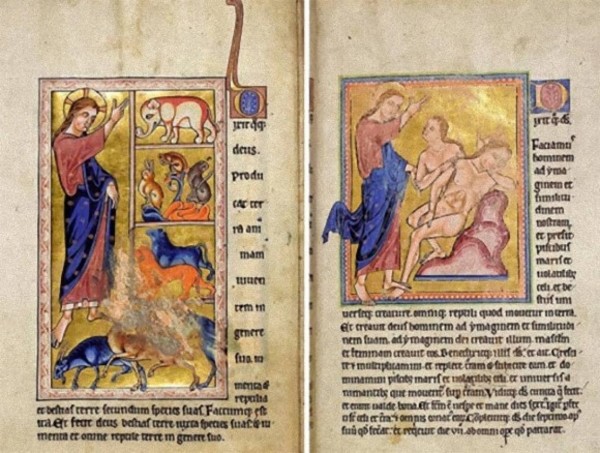 D
ixit q;q;
deus.
Produ
cat ter
ra ani
mam
viuen
tem in
genere
suo. iu
menta &
reptilia
et bestias terre secundum species suas. Factumq; est
ita. Et fecit deus bestias terre iuxta species suas & iu
menta et omne reptile terre in genere suo.
D
ixit q; ds.
Faciam'
hominem
ad yma
ginem et
similitu
dinem
nostram,
et presit
piscibus
maris et
uolatilib;
celi. et be
stiis uni
uerseq; creature. omniq; reptili quod mouetur in terra.
Et creauit deus hominem ad ymaginem et similitudi
nem suam. ad ymaginem dei creauit illum. masculū
et feminam creauit eos. Benedixitq; illis ds. et ait. Cresci
te & multiplicamini et replete terram & subicite eam. et do
minamini piscib; maris et uolatilib; celi. et uniuersis a
nimantib; que mouent' sup terram. Viditq; ds cuncta q fecit.
et erant ualde bona. Et fcm ē uespe et mane dies sext'. Igit' pfecti
st celi et tra & omnis ornat' eoꝝ. Compleuitq; ds die septimo op'
suū qd fecat. et requieuit die vii. ab omni ope qd patrarat.